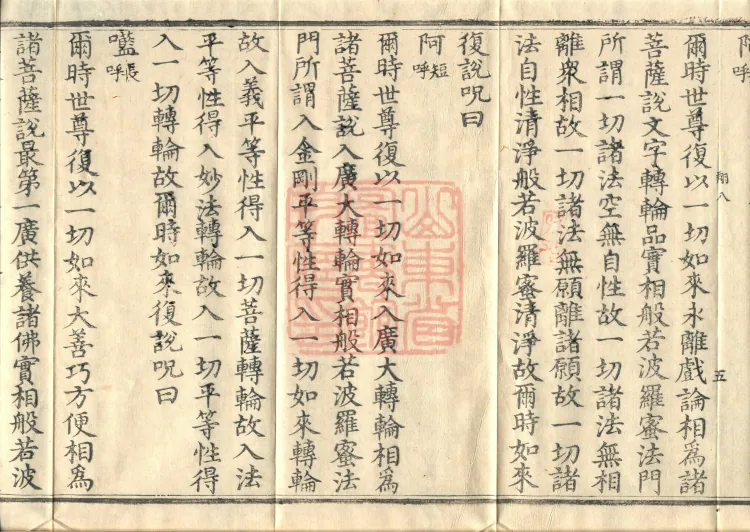 呼
翔八 五
爾時世尊復以一切如來永離戲論相爲諸
菩薩說文字轉輪品實相般若波羅蜜法門
所謂一切諸法空無自性故一切諸法無相
離衆相故一切諸法無願離諸願故一切諸
法自性清淨般若波羅蜜清淨故爾時如來
復說呪曰
阿短呼
爾時世尊復以一切如來入廣大轉輪相爲
諸菩薩說入廣大轉輪實相般若波羅蜜法
門所謂入金剛平等性得入一切如來轉輪
故入義平等性得入一切菩薩轉輪故入法
平等性得入妙法轉輪故入一切平等性得
入一切轉輪故爾時如來復說呪曰
嚂長呼
爾時世尊復以一切如來大善巧方便相爲
諸菩薩說最第一廣供養諸佛實相般若波
山東省